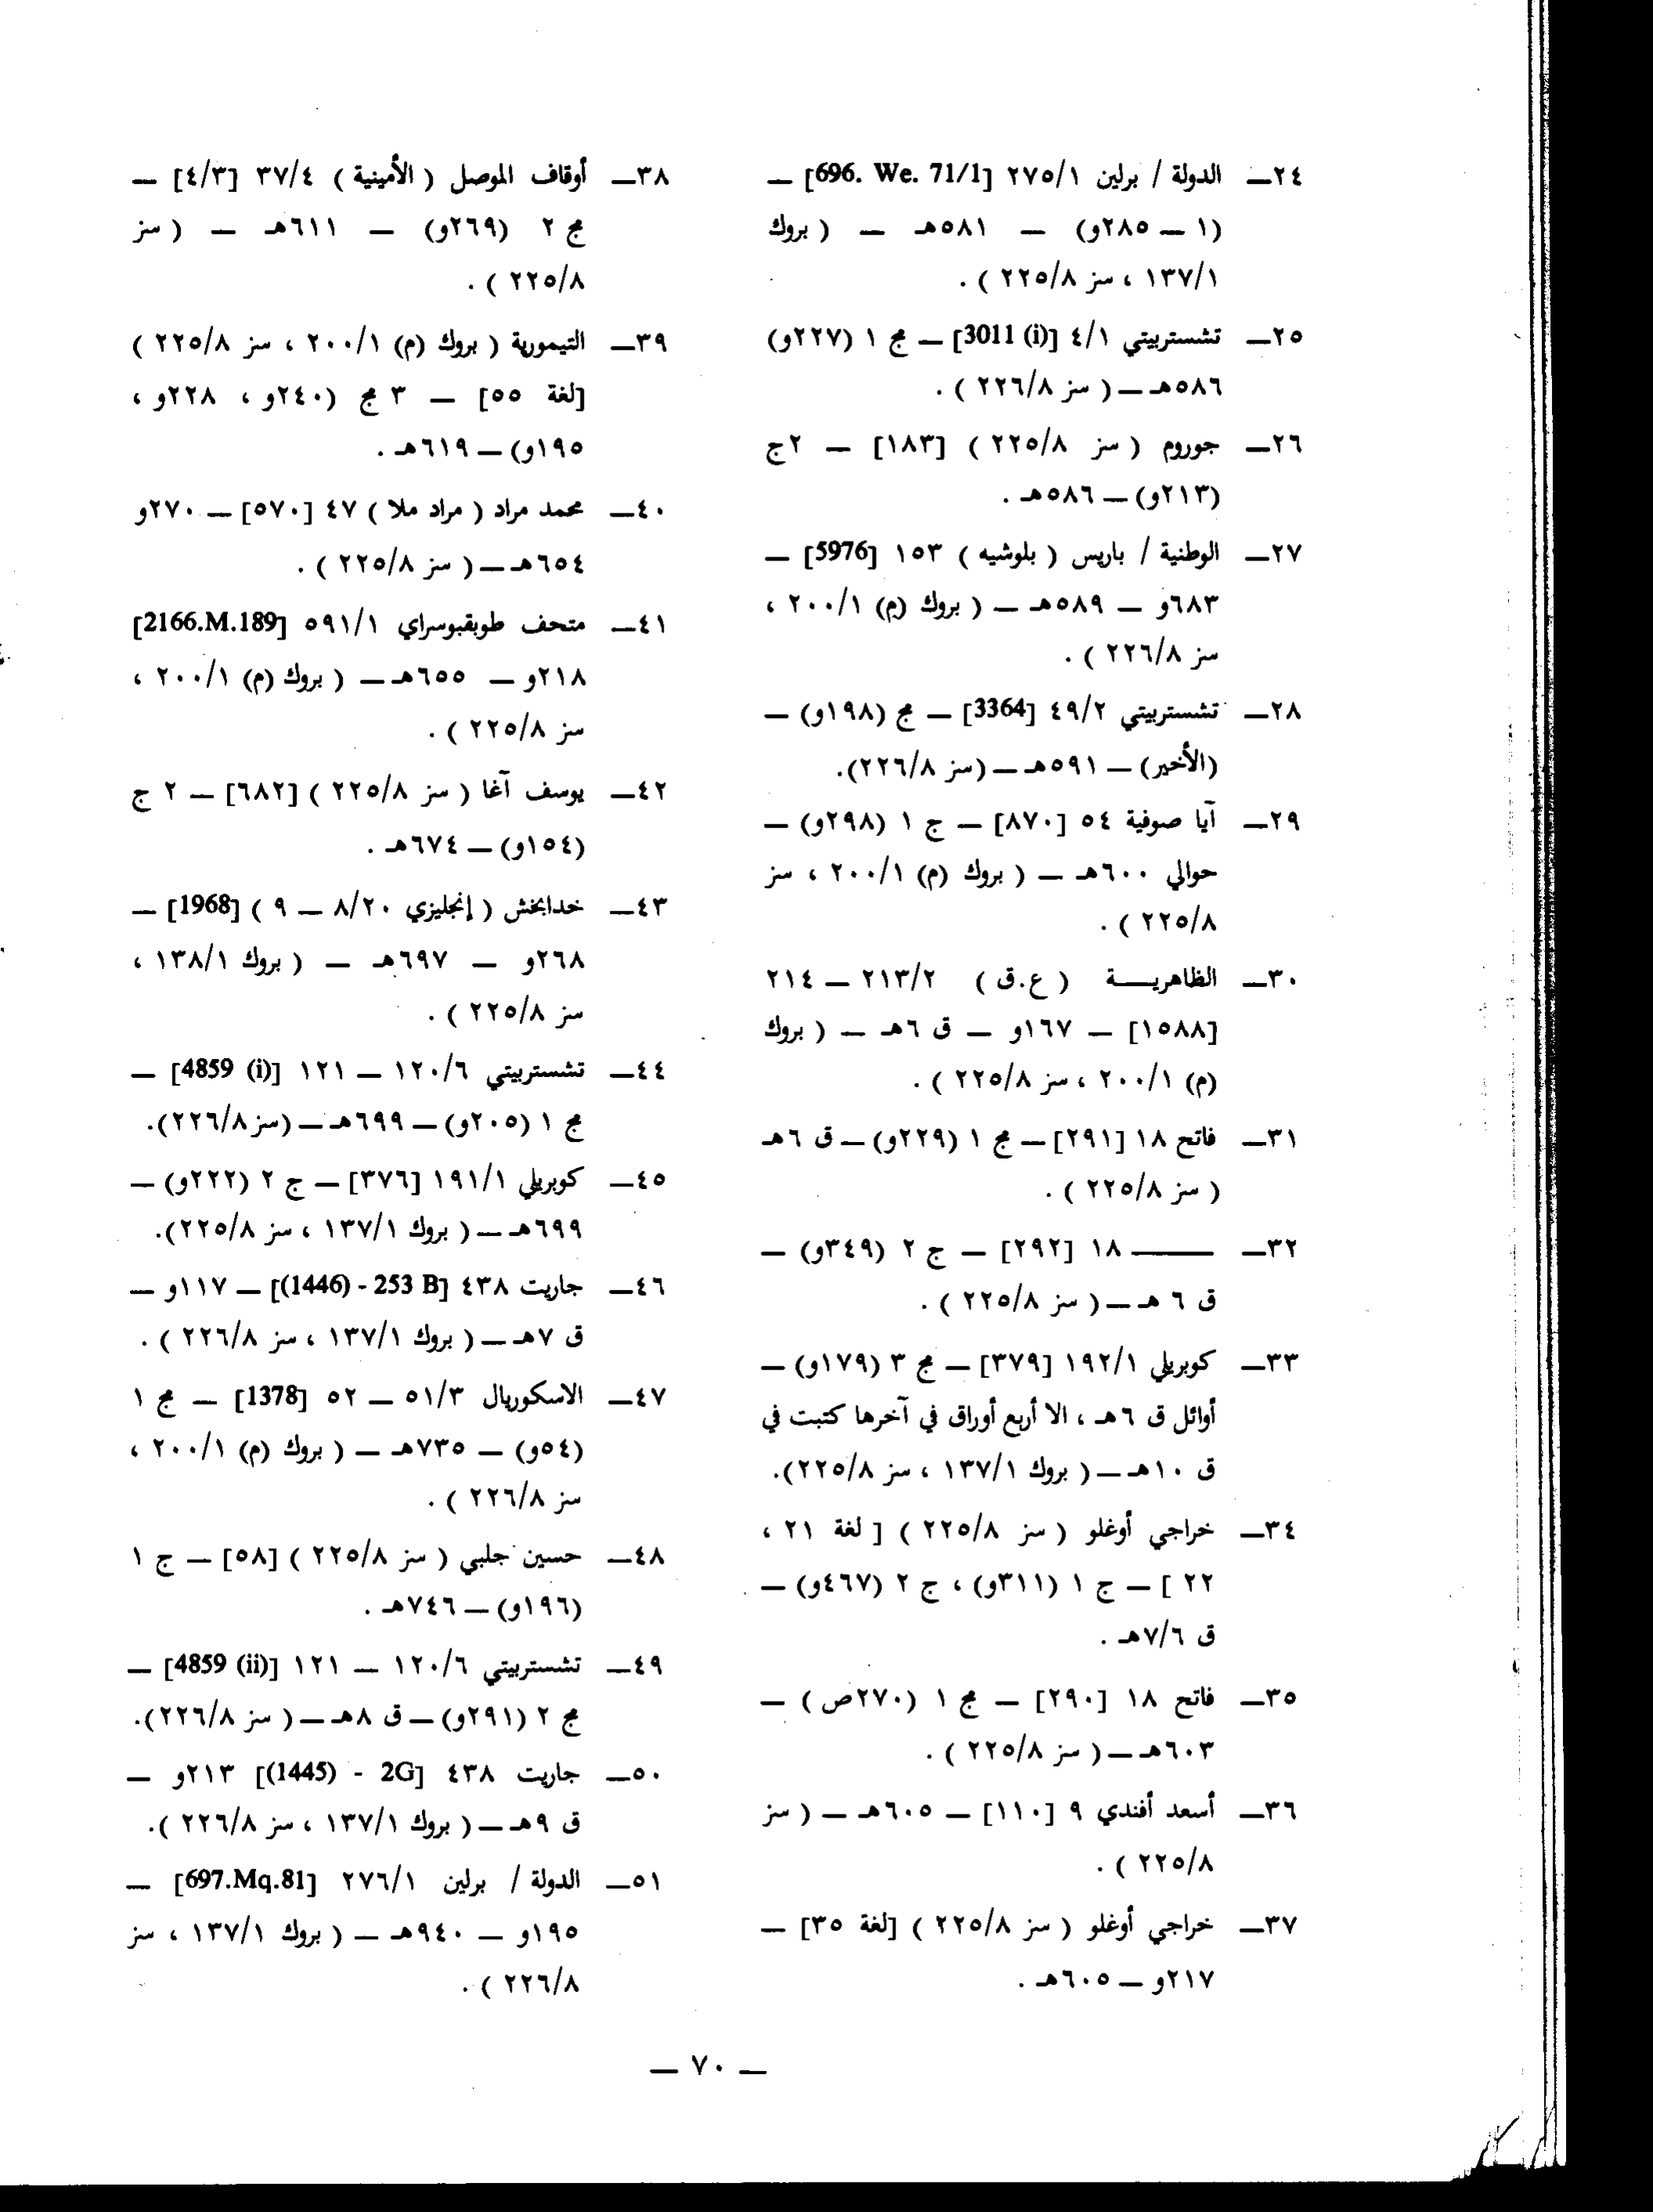 ٢٤ــ الدولة / برلين ٢٧٥/١ [696. We. 71/1] ــ
(١ ــ ٢٨٥و) ــ ٥٨١هـ ــ ( بروك
١٣٧/١ ، سز ٢٢٥/٨ ) .
٢٥ــ تشستربيتي ٤/١ [3011 (i)] ــ مج ١ (٢٢٧و)
٥٨٦هـ ــ ( سز ٢٢٦/٨ ) .
٢٦ــ جوروم ( سز ٢٢٥/٨ ) [١٨٣] ــ ٢ج
(٢١٣و) ــ ٥٨٦هـ .
٢٧ــ الوطنية / باريس ( بلوشيه ) ١٥٣ [5976] ــ
٦٨٣و ــ ٥٨٩هـ ــ ( بروك (م) ٢٠٠/١ ،
سز ٢٢٦/٨ ) .
٢٨ــ تشستربيتي ٤٩/٢ [3364] ــ مج (١٩٨و) ــ
(الأخير) ــ ٥٩١هـ ــ (سز ٢٢٦/٨).
٢٩ــ آيا صوفية ٥٤ [٨٧٠] ــ ج ١ (٢٩٨و) ــ
حوالي ٦٠٠هـ ــ ( بروك (م) ٢٠٠/١ ، سز
٢٢٥/٨ ) .
٣٠ــ الظاهريــــة ( ع.ق ) ٢١٣/٢ ــ ٢١٤
[١٥٨٨] ــ ١٦٧و ــ ق ٦هـ ــ ( بروك
(م) ٢٠٠/١ ، سز ٢٢٥/٨ ) .
٣١ــ فاتح ١٨ [٢٩١] ــ مج ١ (٢٢٩و) ــ ق ٦هـ
( سز ٢٢٥/٨ ) .
٣٢ــ ــــــــ ١٨ [٢٩٢] ــ ج ٢ (٣٤٩و) ــ
ق ٦ هـ ــ ( سز ٢٢٥/٨ ) .
٣٣ــ كوبريلي ١٩٢/١ [٣٧٩] ــ مج ٣ (١٧٩و) ــ
أوائل ق ٦هـ ، الا أربع أوراق في آخرها كتبت في
ق ١٠هـ ــ ( بروك ١٣٧/١ ، سز ٢٢٥/٨).
٣٤ــ خراجي أوغلو ( سز ٢٢٥/٨ ) [ لغة ٢١ ،
٢٢ ] ــ ج ١ (٣١١و) ، ج ٢ (٤٦٧و) ــ
ق ٧/٦هـ .
٣٥ــ فاتح ١٨ [٢٩٠] ــ مج ١ (٢٧٠ص ) ــ
٦٠٣هـ ــ ( سز ٢٢٥/٨ ) .
٣٦ــ أسعد أفندي ٩ [١١٠] ــ ٦٠٥هـ ــ ( سز
٢٢٥/٨ ) .
٣٧ــ خراجي أوغلو ( سز ٢٢٥/٨ ) [لغة ٣٥] ــ
٢١٧و ــ ٦٠٥هـ .
٣٨ــ أوقاف الموصل ( الأمينية ) ٣٧/٤ [٤/٣] ــ
مج ٢ (٢٦٩و) ــ ٦١١هـ ــ ( سز
٢٢٥/٨ ) .
٣٩ــ التيمورية ( بروك (م) ٢٠٠/١ ، سز ٢٢٥/٨ )
[لغة ٥٥] ــ ٣ مج (٢٤٠و ، ٢٢٨و ،
١٩٥و) ــ ٦١٩هـ .
٤٠ــ محمد مراد ( مراد ملا ) ٤٧ [٥٧٠] ــ ٢٧٠و
٦٥٤هـ ــ ( سز ٢٢٥/٨ ) .
٤١ــ متحف طوبقبوسراي ٥٩١/١ [2166.M.189]
٢١٨و ــ ٦٥٥هـ ــ ( بروك (م) ٢٠٠/١ ،
سز ٢٢٥/٨ ) .
٤٢ــ يوسف آغا ( سز ٢٢٥/٨ ) [٦٨٢] ــ ٢ ج
(١٥٤و) ــ ٦٧٤هـ .
٤٣ــ خدابخش ( إنجليزي ٨/٢٠ ــ ٩ ) [1968] ــ
٢٦٨و ــ ٦٩٧هـ ــ ( بروك ١٣٨/١ ،
سز ٢٢٥/٨ ) .
٤٤ــ تشستربيتي ١٢٠/٦ ــ ١٢١ [4859 (i)] ــ
مج ١ (٢٠٥و) ــ ٦٩٩هـ ــ (سز ٢٢٦/٨).
٤٥ــ كوبريلي ١٩١/١ [٣٧٦] ــ ج ٢ (٢٢٢و) ــ
٦٩٩هـ ــ ( بروك ١٣٧/١ ، سز ٢٢٥/٨).
٤٦ــ جاريت ٤٣٨ [(1446) - 253 B] ــ ١١٧و ــ
ق ٧هـ ــ ( بروك ١٣٧/١ ، سز ٢٢٦/٨ ) .
٤٧ــ الاسكوريال ٥١/٣ ــ ٥٢ [1378] ــ مج ١
(٥٤و) ــ ٧٣٥هـ ــ ( بروك (م) ٢٠٠/١ ،
سز ٢٢٦/٨ ) .
٤٨ــ حسين جلبي ( سز ٢٢٥/٨ ) [٥٨] ــ ج ١
(١٩٦و) ــ ٧٤٦هـ .
٤٩ــ تشستربيتي ١٢٠/٦ ــ ١٢١ [4859 (ii)] ــ
مج ٢ (٢٩١و) ــ ق ٨هـ ــ ( سز ٢٢٦/٨).
٥٠ــ جاريت ٤٣٨ [(1445) - 2G] ٢١٣و ــ
ق ٩هـ ــ ( بروك ١٣٧/١ ، سز ٢٢٦/٨ ).
٥١ــ الدولة / برلين ٢٧٦/١ [697.Mq.81] ــ
١٩٥و ــ ٩٤٠هـ ــ ( بروك ١٣٧/١ ، سز
٢٢٦/٨ ) .
ــ ٧٠ ــ